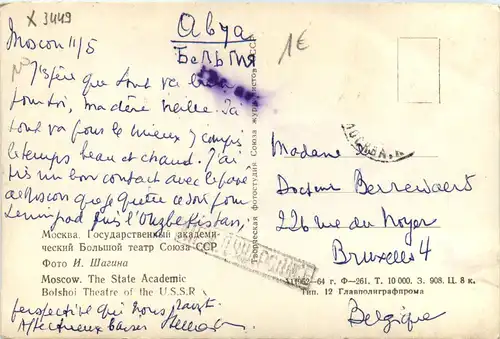 X 3449
Авиа
Бельгия
1€
Moscou 11/5
J'espère que tout va bien
pour toi, ma chère vieille. J'ai
tout va pour le mieux y compris
le temps beau et chaud. J'ai
pris un bon contact avec le
de Moscou que je quitte ce soir pour
Leningrad puis l'Ouzbekistan,
perspective qui nous
Affectueux baisers
Творческая фотостудия Союза журналистов СССР
МОСКВА
Madame
Docteur Berrewaerts
226 rue du Noyer
Bruxelles 4
Belgique
Москва. Государственный академи-
ческий Большой театр Союза ССР
Фото И. Шагина
Moscow. The State Academic
Bolshoi Theatre of the U.S.S.R
1962—64 г. Ф—261. Т. 10 000. З. 908. Ц. 8 к.
Тип. 12 Главполиграфпрома